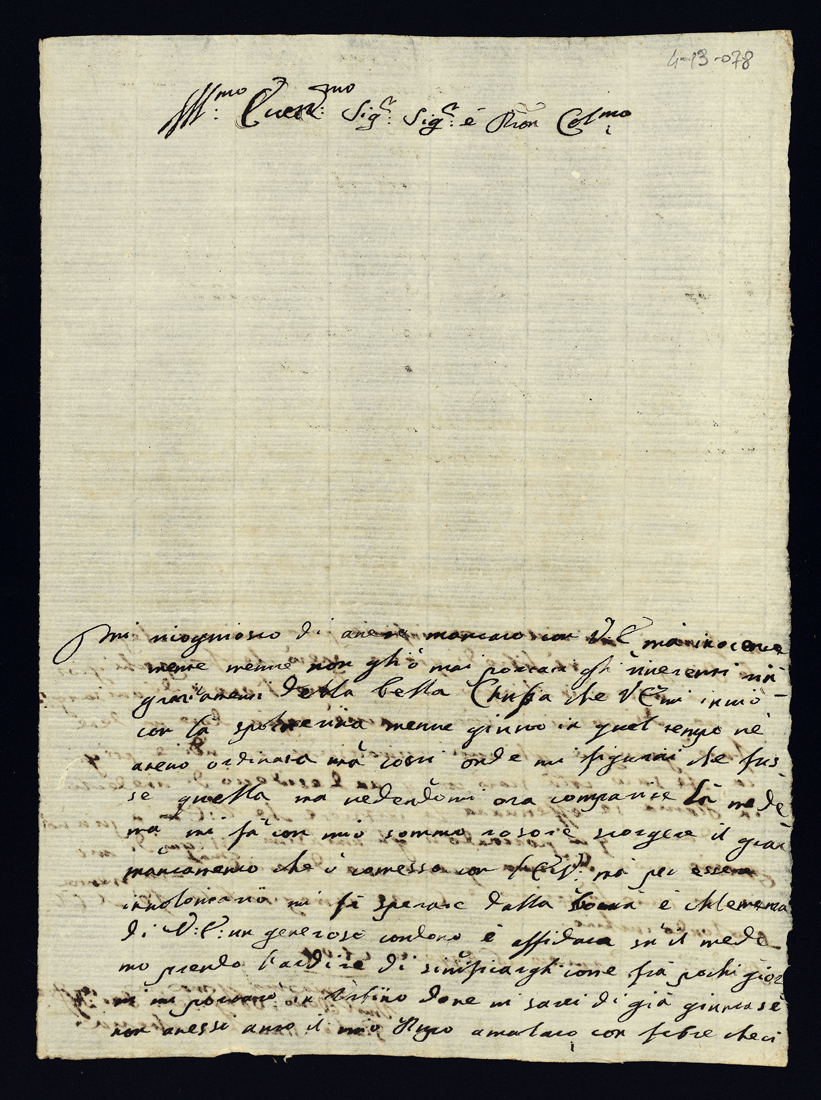 4-13-078
Ill:mo Sig:r Sig:r è Pron Col:mo
Mi ricogniosco di avere mancato con V:E: mà inocente
mente mentre non gli ò mai portati gli riverenti rin
graziamenti della bella che V:E: mi inviò
con la mentre giunto in quel tempo ne
avevo ordinata onde mi figurai che fus
se quella ma vedendomi ora comparire la mede
ma mi fà con mio sommo rosore scorgere il gran
mancamento che ò comesso con mà per essere
involontario mi fà sperare dalla è clemenza
di V:E: un generoso condono è affidata sù il mede
mo prendo l'ardire di come frà pochi gior
ni mi portarò in Urbino dove vi sarei di già giunta se
non avessi auto il mio amalato con febre che ci